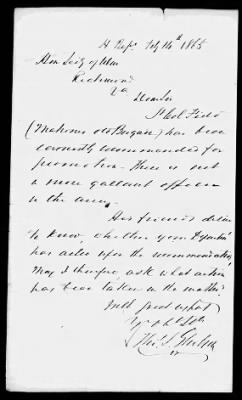 H Reps Feby 14th 1865
Hon Secty of War
Richmond
Va
Dear Sir
Lt Col Feild
(Mahones old Brigade) has been
earnestly recommended for
promotion. There is not
a more gallant officer
in the army.
His friends desire
to know, whether your Department
has acted upon the recommendation,
May I therefore, ask what action
has been taken in the matter?
With great respect
Yr obt Svt
Thos. S. Gholson